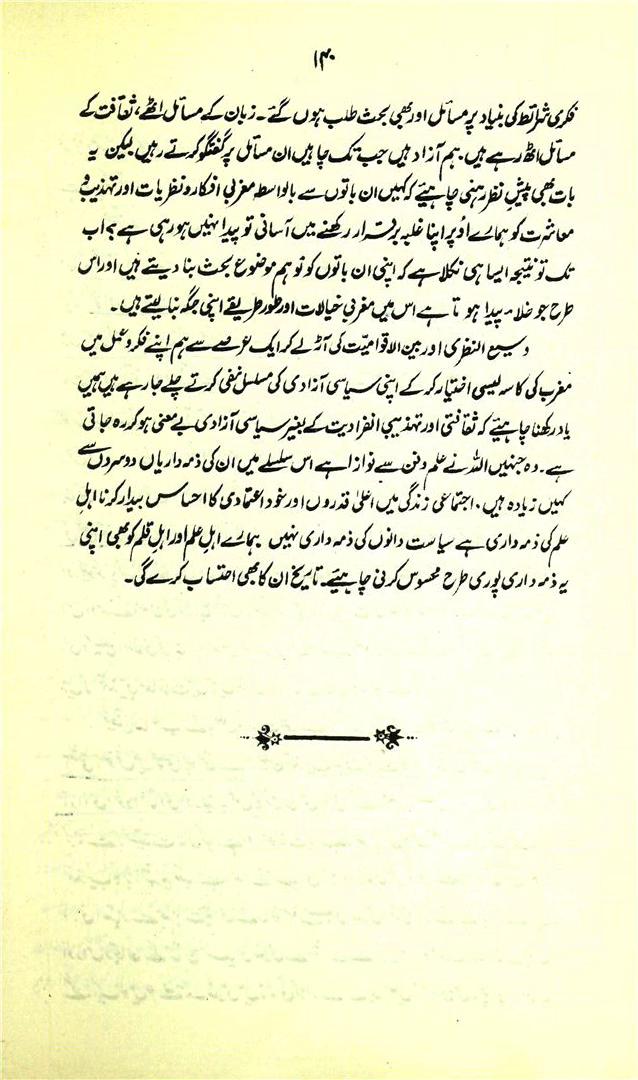 ۱۴۰
فکری شرائط کی بنیاد پر مسائل اور بھی بحث طلب ہوں گے۔ زبان کے مسائل اٹھے، ثقافت کے
مسائل اٹھ رہے ہیں۔ ہم آزاد ہیں جب تک چاہیں ان مسائل پر گفتگو کرتے رہیں لیکن یہ
بات بھی پیشِ نظر رہنی چاہیئے کہ کہیں ان باتوں سے بالواسطہ مغربی افکار و نظریات اور تہذیب و
معاشرت کو ہمارے اُوپر اپنا غلبہ برقرار رکھنے میں آسانی تو پیدا نہیں ہو رہی ہے؟ اب
تک تو نتیجہ ایسا ہی نکلا ہے کہ اپنی ان باتوں کو تو ہم موضوعِ بحث بنا دیتے ہیں اور اس
طرح جو خلاء پیدا ہوتا ہے اس میں مغربی خیالات اور طور طریقے اپنی جگہ بنا لیتے ہیں۔
وسیع النظری اور بین الاقوامیّت کی آڑ لے کر ایک عرصے سے ہم اپنے فکر و عمل میں
مغرب کی کاسہ لیسی اختیار کر کے اپنی سیاسی آزادی کی مسلسل نفی کرتے چلے جا رہے ہیں ہمیں
یاد رکھنا چاہیئے کہ ثقافتی اور تہذیبی انفرادیت کے بغیر سیاسی آزادی بے معنی ہو کر رہ جاتی
ہے۔ وہ جنہیں اللہ نے علم و فن سے نوازا ہے اس سلسلے میں ان کی ذمہ داریاں دوسروں سے
کہیں زیادہ ہیں۔ اجتماعی زندگی میں اعلیٰ قدروں اور خود اعتمادی کا احساس بیدار کرنا اہلِ
علم کی ذمہ داری ہے سیاست دانوں کی ذمہ داری نہیں ہمارے اہلِ علم اور اہلِ قلم کو بھی اپنی
یہ ذمہ داری پوری طرح محسوس کرنی چاہیئے۔ تاریخ ان کا بھی احتساب کرے گی۔